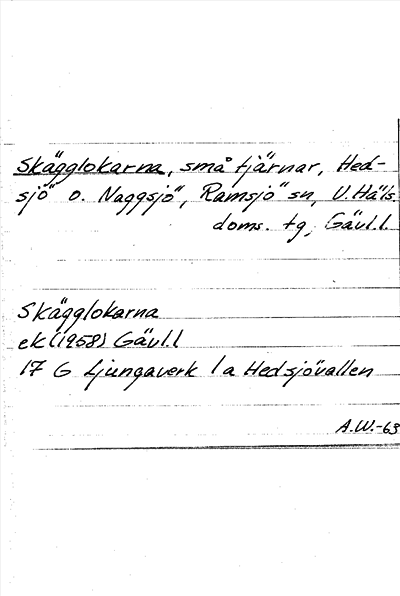 Skägglokarna, små tjärnar, Hed-
sjö o. Naggsjö, Ramsjö sn, V. Häls.
doms. tg, Gävl.l.
Skägglokarna
ek (1958) Gävl.l
17 G Ljungaverk 1a Hedsjövallen
A.W.-63